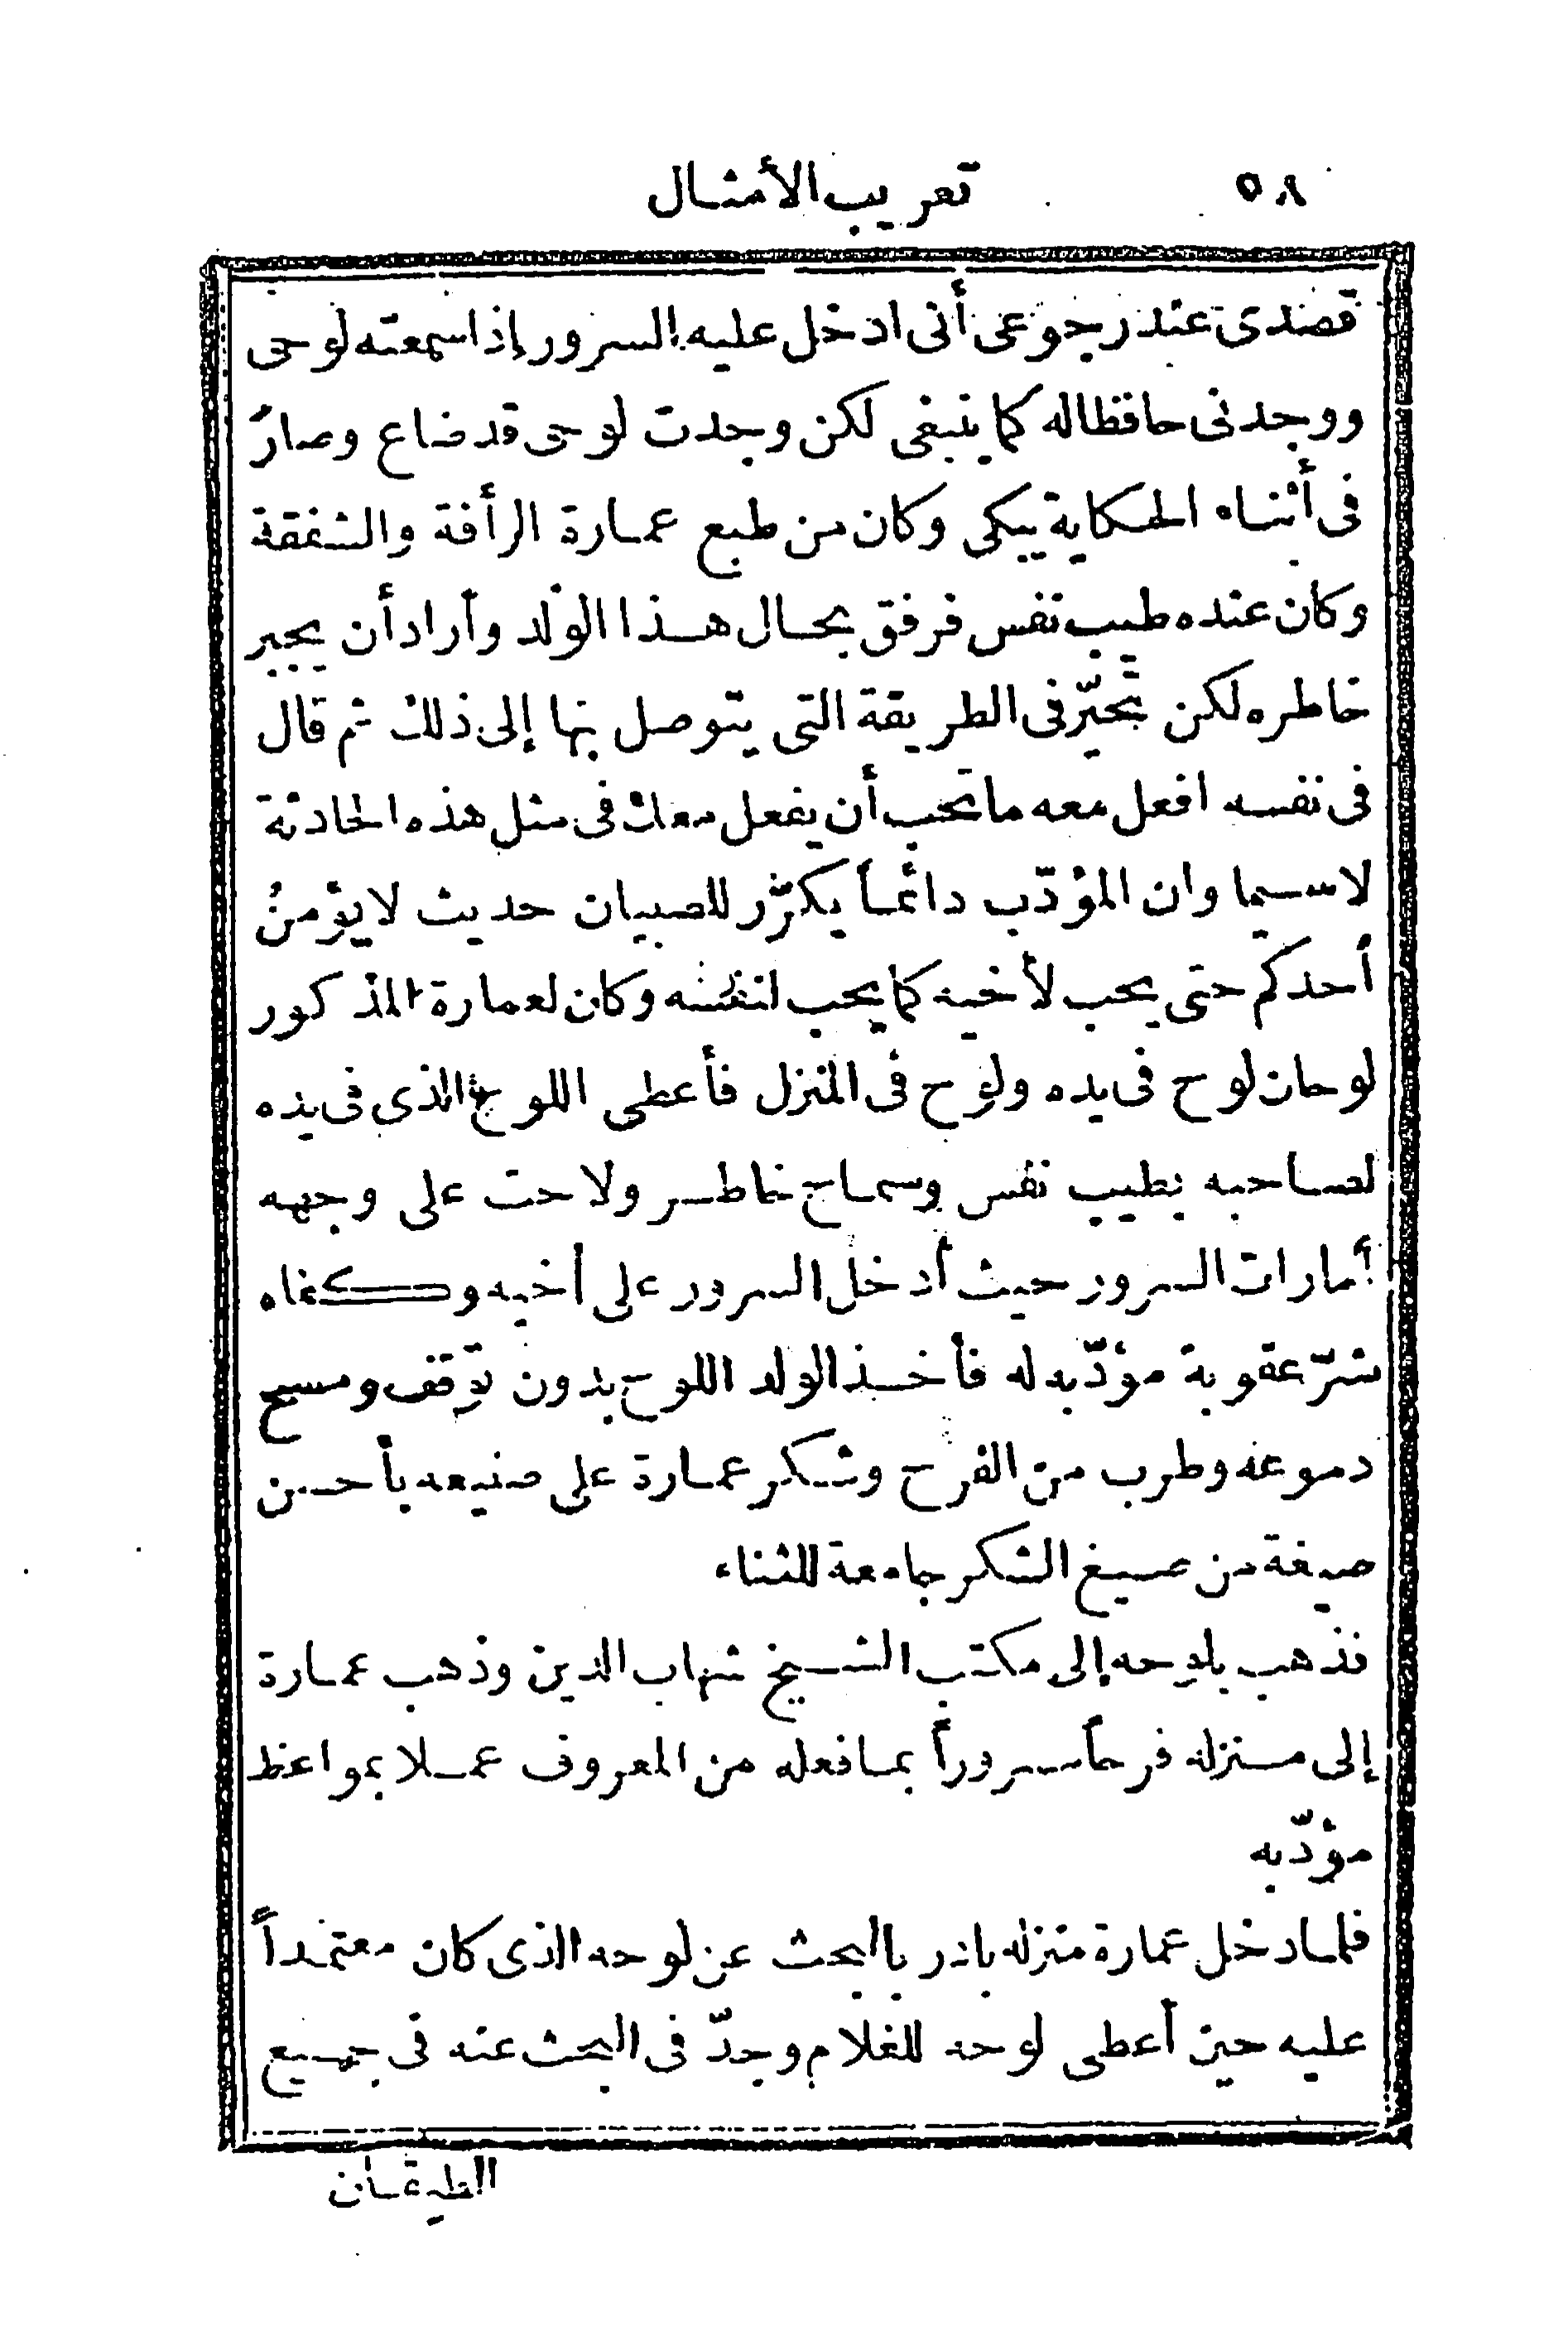 ٥٨ تعريب الأمثال
قصدى عند رجوعى أنى ادخل عليه السرور إذا سمعته لوحى
ووجدنى حافظا له كما ينبغى لكن وجدت لوحى قد ضاع وصار
فى أثناء الحكاية يبكى وكان من طبع عمارة الرأفة والشفقة
وكان عنده طيب نفس فرفق بحال هذا الولد وأراد أن يجبر
خاطره لكن تحيّر فى الطريقة التى يتوصل بها إلى ذلك ثم قال
فى نفسه افعل معه ما تحب أن يفعل معك فى مثل هذه الحادثة
لا سيما وان المؤدّب دائماً يكرّر للصبيان حديث لا يؤمنُ
أحدكم حتى يحب لأخيه كما يحب لنفسه وكان لعمارة المذكور
لوحان لوح فى يده ولوح فى المنزل فأعطى اللوح الذى فى يده
لصاحبه بطيب نفس وسماح خاطر ولاحت على وجهه
أمارات السرور حيث أدخل السرور على أخيه وكفاه
شرّ عقوبة مؤدّبه له فأخذ الولد اللوح بدون توقف ومسح
دموعه وطرب من الفرح وشكر عمارة على صنيعه بأحسن
صيغة من صيغ الشكر جامعة للثناء
فذهب بلوحه إلى مكتب الشيخ شهاب الدين وذهب عمارة
إلى منزله فرحاً سروراً بما فعله من المعروف عملا بمواعظ
مؤدّبه
فلما دخل عمارة منزله بادر بالبحث عن لوحه الذى كان معتمداً
عليه حين أعطى لوحه للغلام وجدّ فى البحث عنه فى جميع
الطيقان